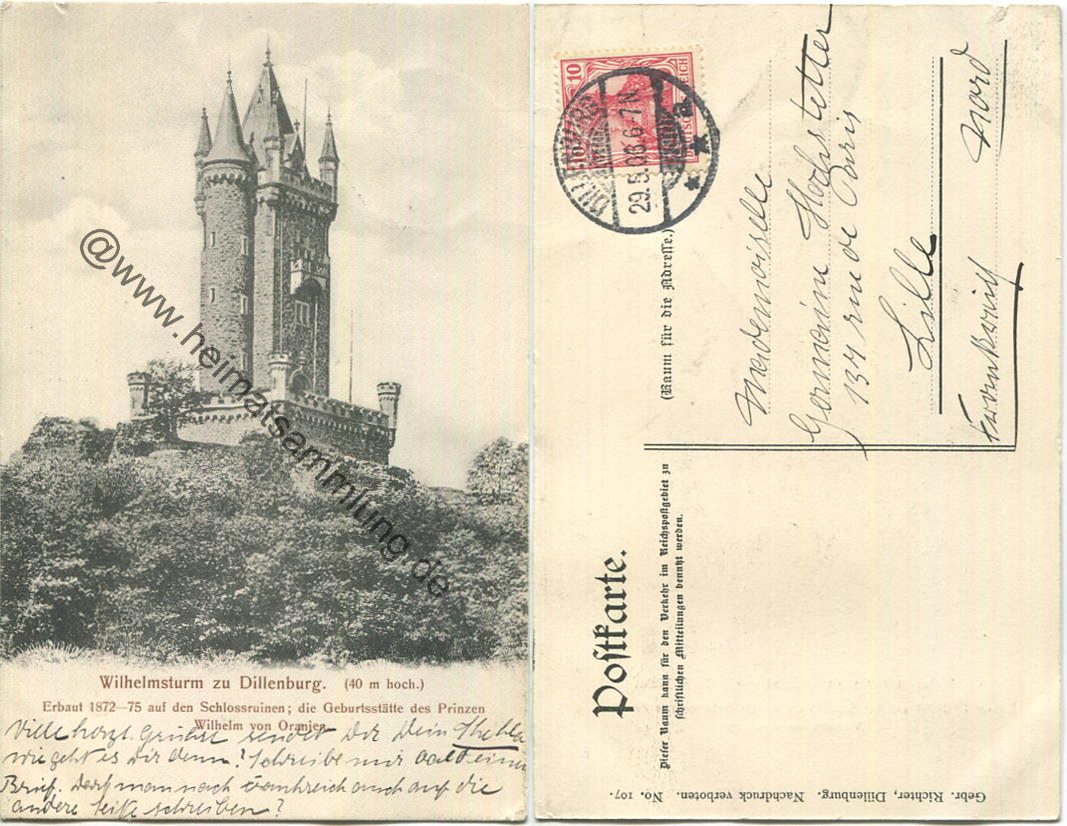 @www.heimatsammlung.de
Wilhelmsturm zu Dillenburg. (40 m hoch.)
Erbaut 1872—75 auf den Schlossruinen; die Geburtsstätte des Prinzen
Wilhelm von Oranien.
Viele herzl. Grüße sendet Dir Dein Thekla
wie geht es Dir denn? Schreibe mir bald einen
Brief. Darf man nach Frankreich auch auf die
andere Seite schreiben?
10
DEUTSCHES REICH
29.5.06.6-7N
a
Postkarte.
Dieser Raum kann für den Verkehr im Reichspostgebiet zu
schriftlichen Mitteilungen benutzt werden.
(Raum für die Adresse.)
Mademoiselle
Germaine Hochstetter
134 rue de Paris
Lille
Nord
Frankreich
Gebr. Richter, Dillenburg. Nachdruck verboten. No. 107.